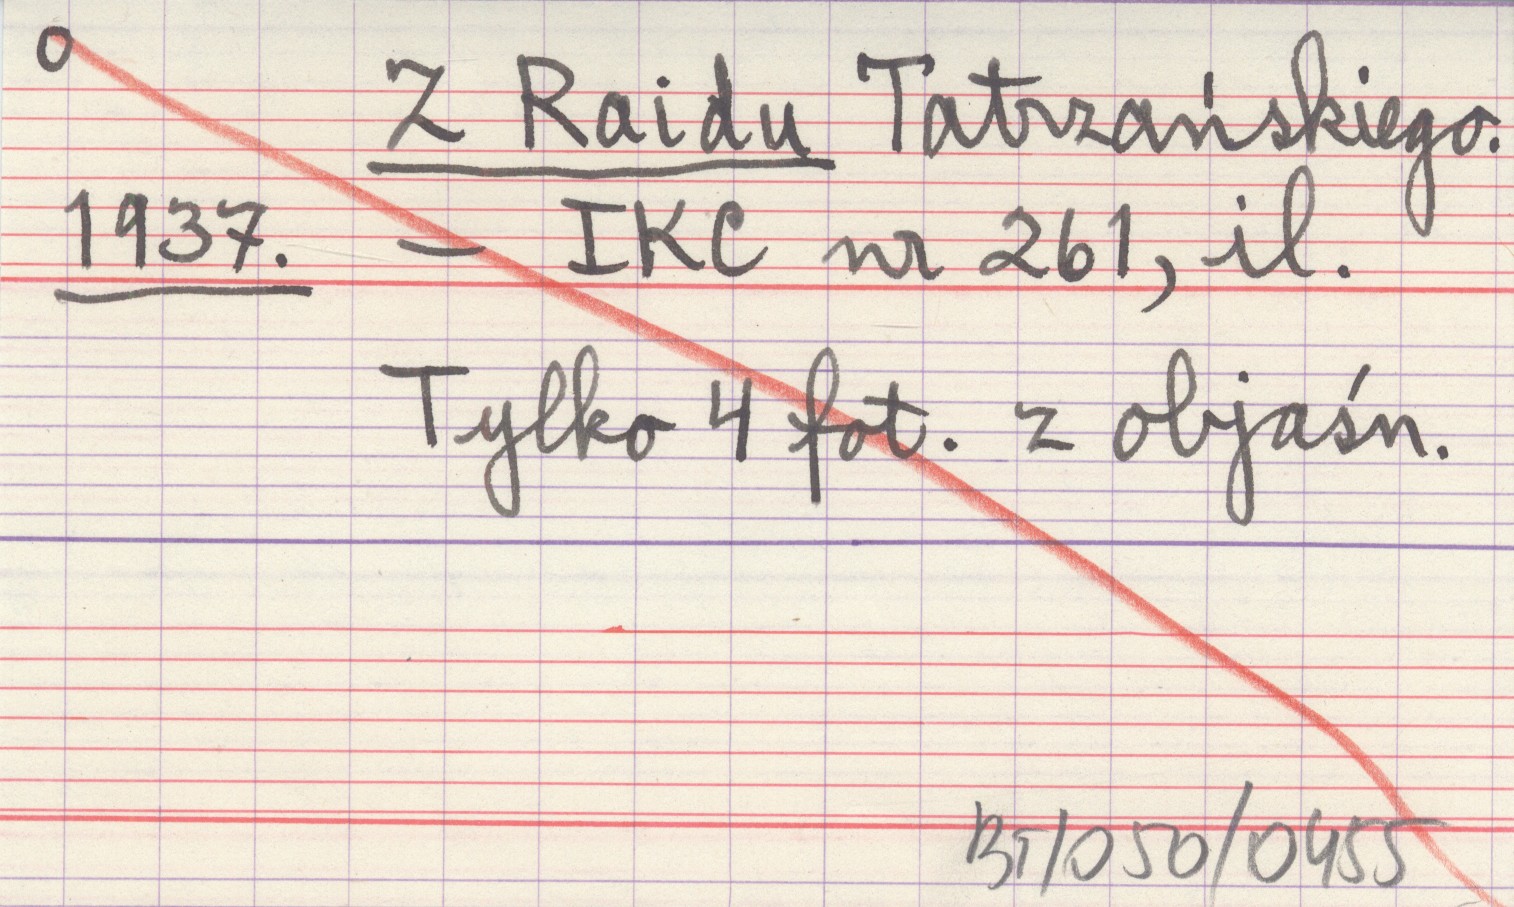 o
Z Raidu Tatrzańskiego.
1937. — IKC nr 261, il.
Tylko 4 fot. z objaśn.
BT/050/0455